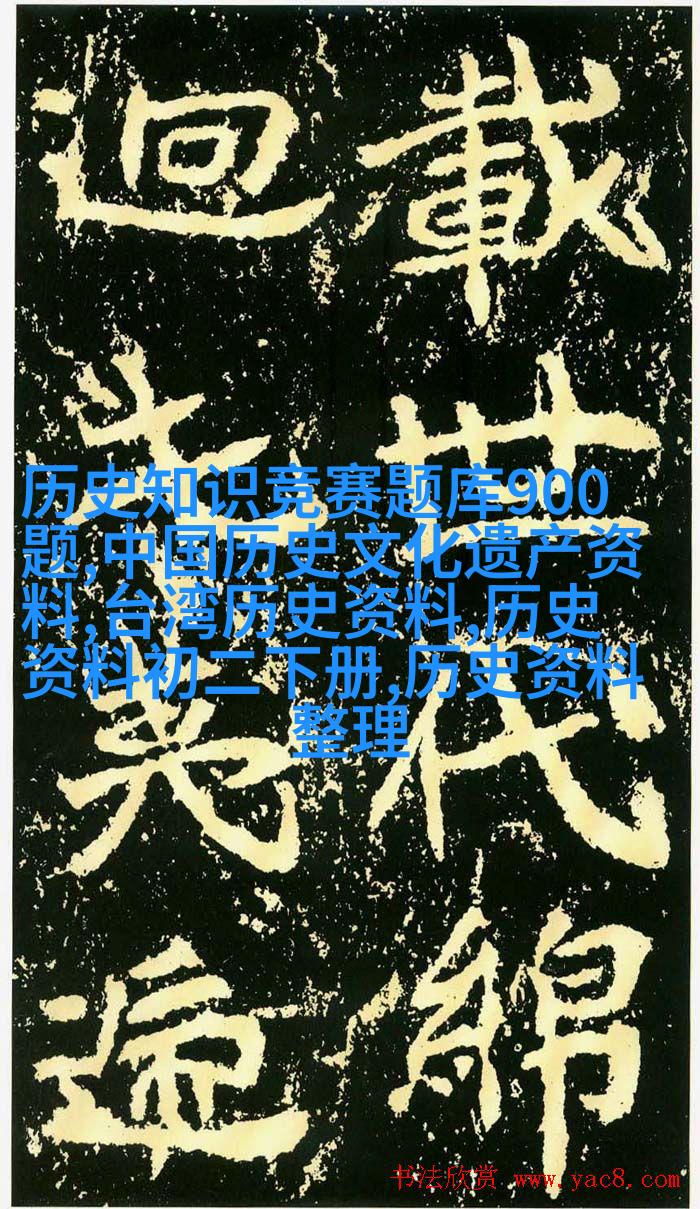 載世代綿
迴夷遞
历史知识竞赛题库900
题,中国历史文化遗产资
料,台湾历史资料,历史
资料初二下册,历史资料
整理
书法欣赏 www.yac8.com